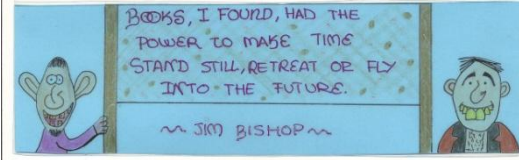 BOOKS, I FOUND, HAD THE
POWER TO MAKE TIME
STAND STILL, RETREAT OR FLY
INTO THE FUTURE.
~ JIM BISHOP ~